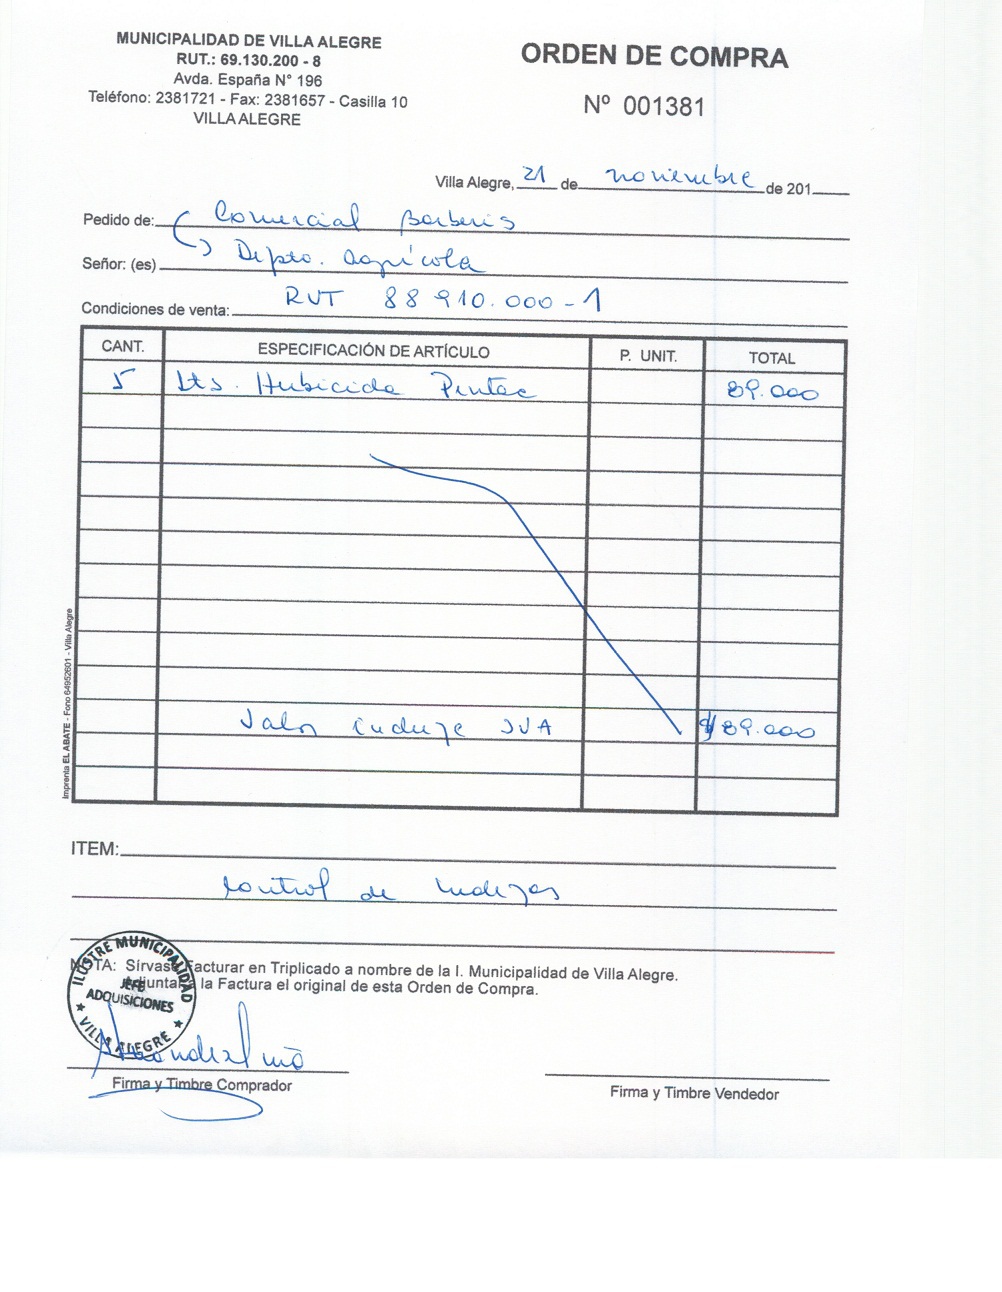 MUNICIPALIDAD DE VILLA ALEGRE
RUT.: 69.130.200 - 8
Avda. España N° 196
Teléfono: 2381721 - Fax: 2381657 - Casilla 10
VILLA ALEGRE
ORDEN DE COMPRA
Nº 001381
Villa Alegre, 21 de noviembre de 201
Pedido de: Comercial Barberis
Señor: (es) Depto. Agrícola
RUT 88 910.000-1
Condiciones de venta:
CANT. ESPECIFICACIÓN DE ARTÍCULO P. UNIT. TOTAL
5 Lts. Hubicida 89.000
Valor incluye IVA $89.000
Imprenta EL ABATE - Fono 64952601 - Villa Alegre
ITEM:
Control de malezas
NOTA: Sírvase Facturar en Triplicado a nombre de la I. Municipalidad de Villa Alegre.
Adjuntar a la Factura el original de esta Orden de Compra.
ILUSTRE MUNICIPALIDAD
JEFE
ADQUISICIONES
VILLA ALEGRE
Firma y Timbre Comprador
Firma y Timbre Vendedor